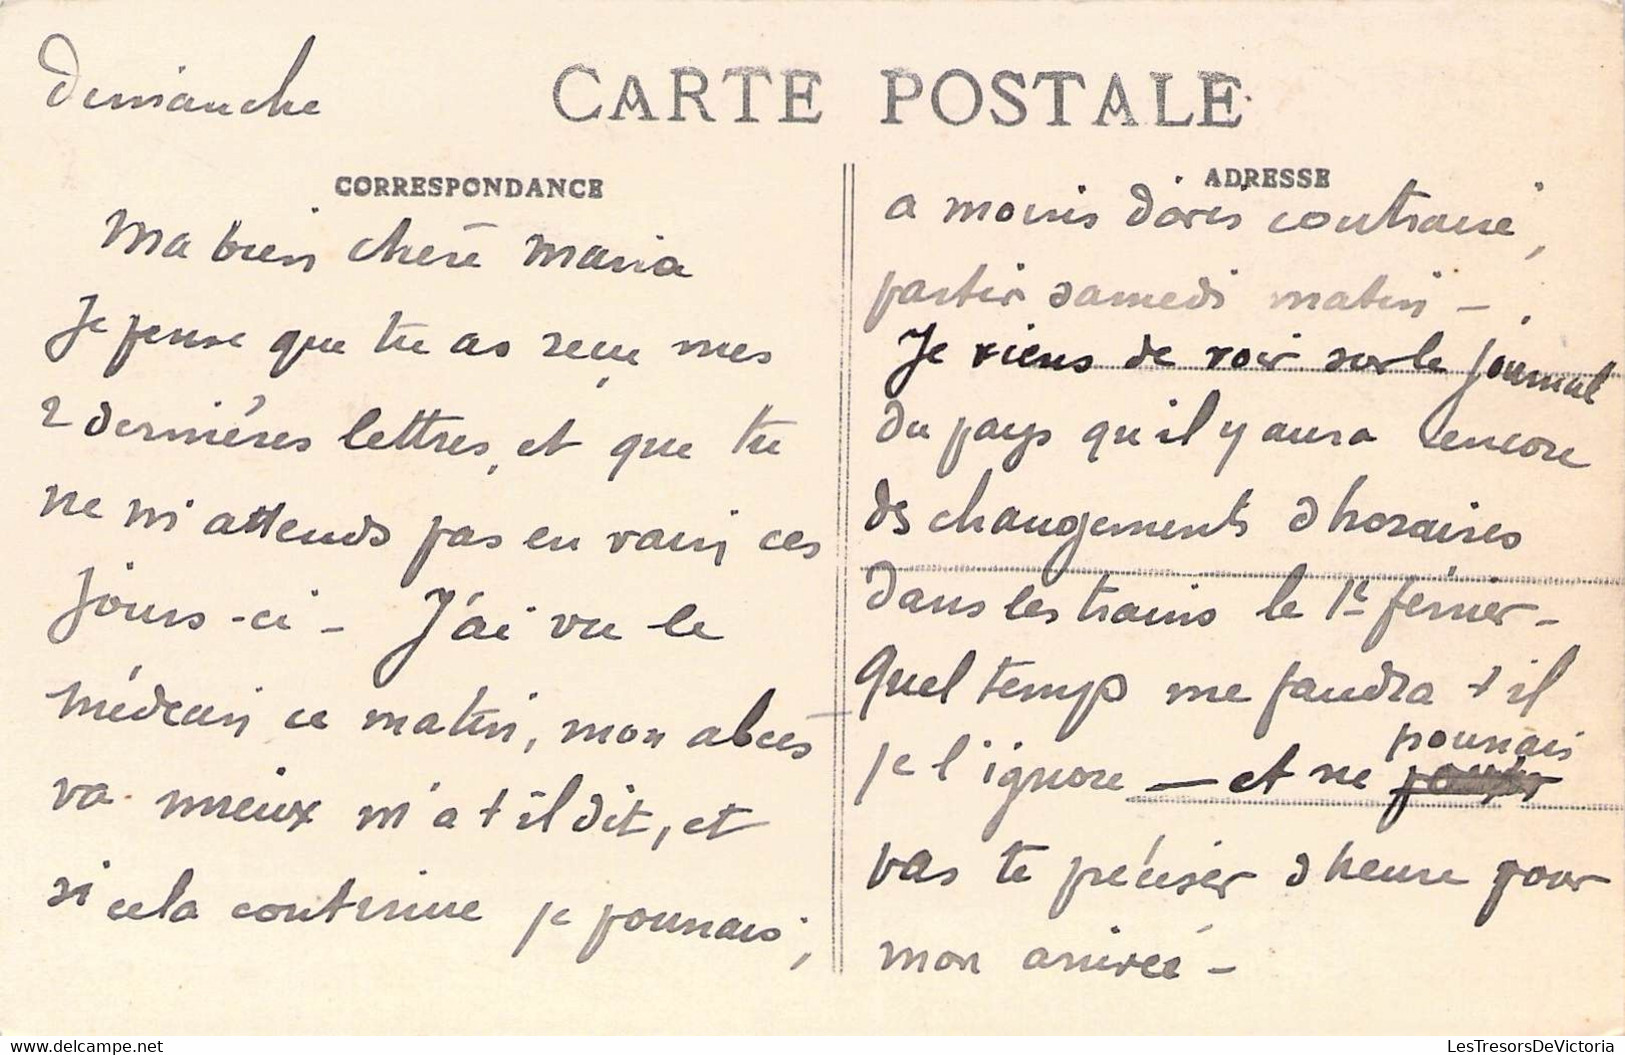 Dimanche
CARTE POSTALE
CORRESPONDANCE
Ma bien chère Maria
Je pense que tu as reçu mes
2 dernières lettres, et que tu
ne m'attends pas en vain ces
jours-ci - J'ai vu le
médecin ce matin, mon abcès
va mieux m'a t il dit, et
si cela continue je pourrais,
ADRESSE
a moins d'avis contraire,
partir samedi matin -
Je viens de voir sur le journal
du pays qu'il y aura encore
des changements d'horaires
dans les trains le 1er février -
Quel temps me faudra t il
je l'ignore - et ne pourrais
pas te préciser d'heure pour
mon arrivée -
LesTresorsDeVictoria.com
LesTresorsDeVictoria